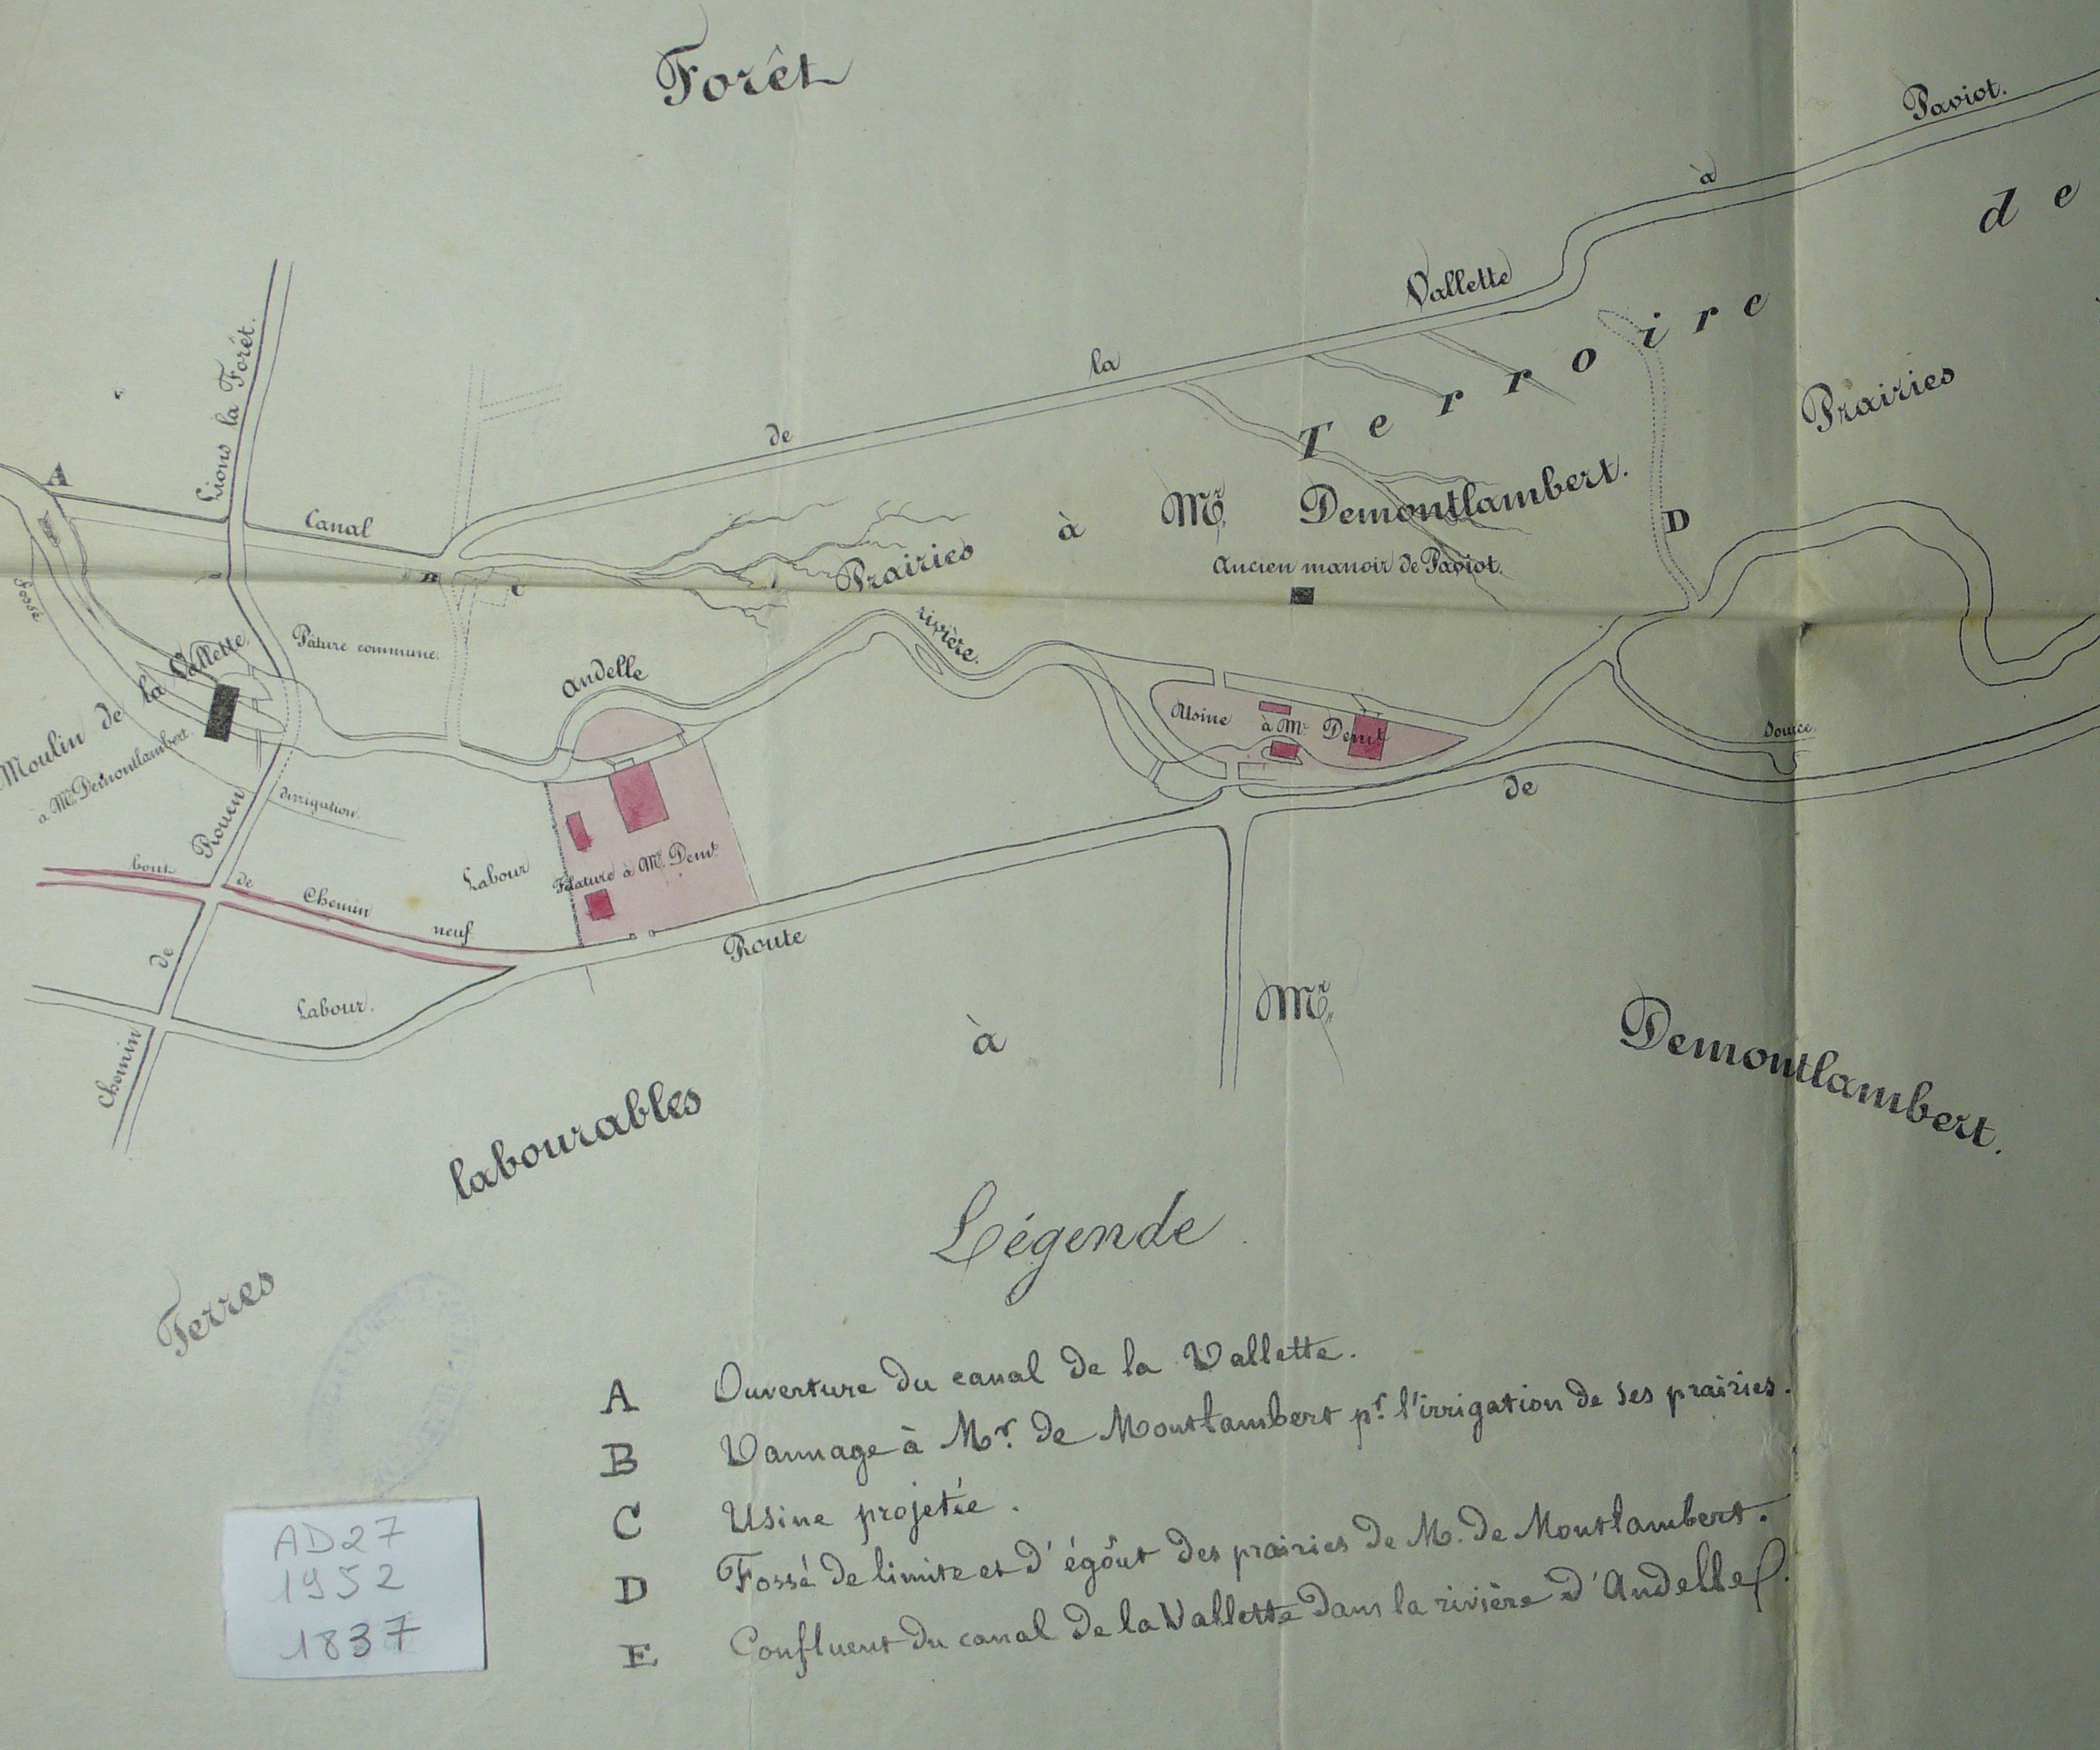 Forêt
Paviot.
à
de
Vallette
Terroire
la
de
Prairies
Lions la Forêt.
A
Canal
B
C
Prairies
à
Mr. Demontlambert.
D
Ancien manoir de Paviot.
fossé
Pâture commune.
Andelle
rivière.
Moulin de la Vallette
à Mr. Demontlambert.
Usine à Mr. Demt.
Source.
de
d'irrigation.
Rouen
bout de Chemin neuf
Labour
Filature à Mr. Demt.
Route
de
Labour.
Chemin
à
Mr.
Demontlambert.
labourables
Terres
Légende
A Ouverture du canal de la Vallette.
B Vannage à Mr. de Montlambert pr. l'irrigation de ses prairies.
C Usine projetée.
D Fossé de limite et d'égôut des prairies de M. de Montlambert.
E Confluent du canal de la Vallette dans la rivière d'Andelle.
AD27
1952
1837